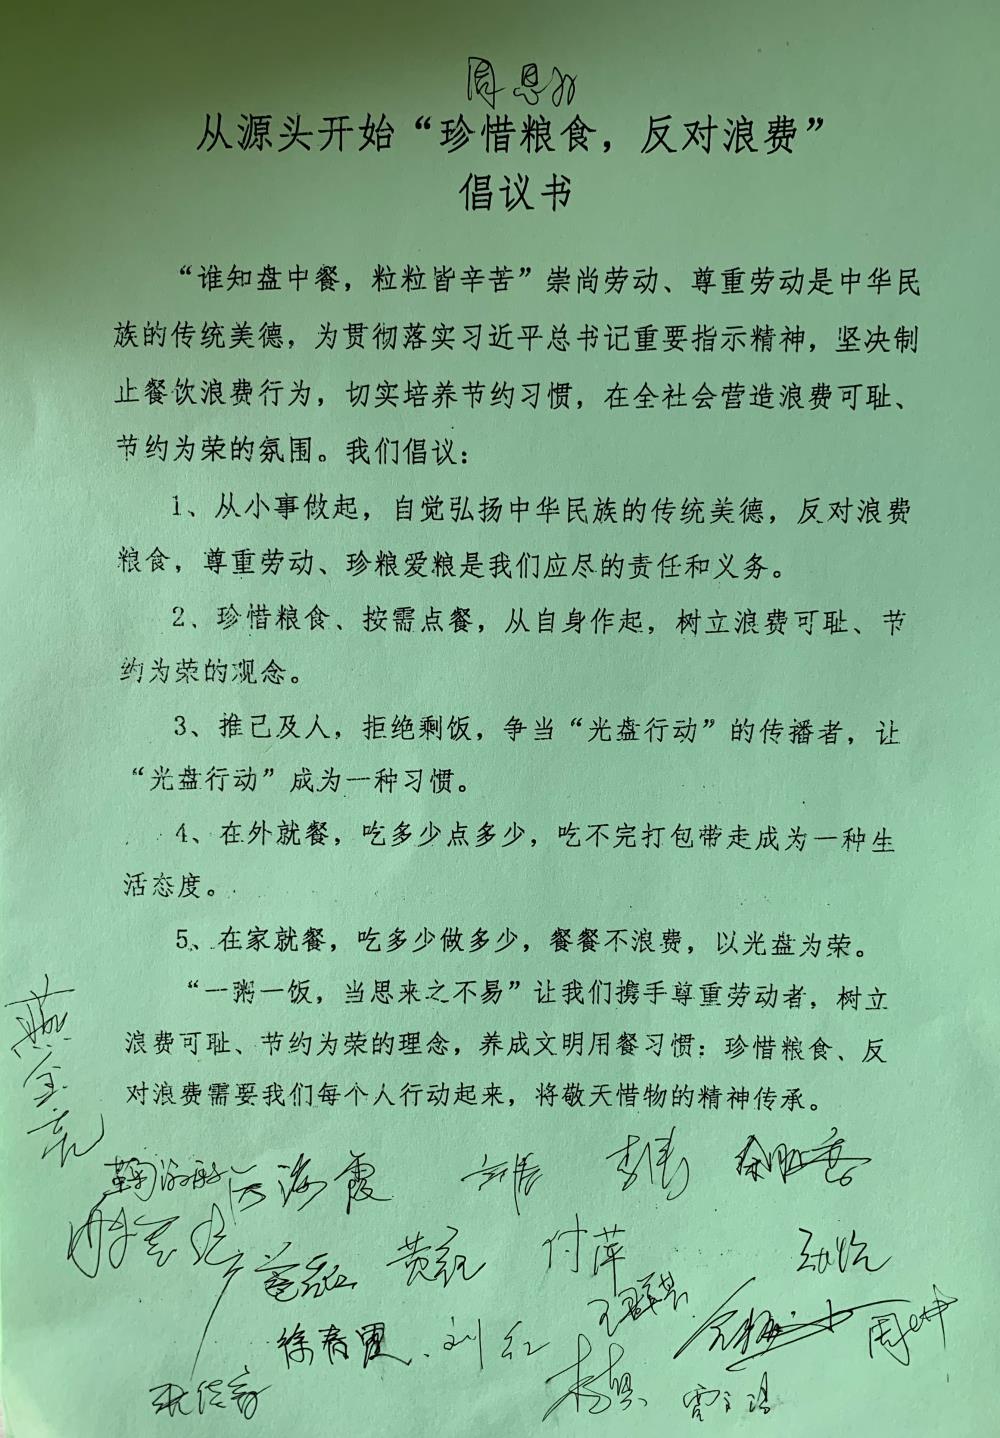 周恩
从源头开始“珍惜粮食，反对浪费”
倡议书
“谁知盘中餐，粒粒皆辛苦”崇尚劳动、尊重劳动是中华民
族的传统美德，为贯彻落实习近平总书记重要指示精神，坚决制
止餐饮浪费行为，切实培养节约习惯，在全社会营造浪费可耻、
节约为荣的氛围。我们倡议：
1、从小事做起，自觉弘扬中华民族的传统美德，反对浪费
粮食，尊重劳动、珍粮爱粮是我们应尽的责任和义务。
2、珍惜粮食、按需点餐，从自身作起，树立浪费可耻、节
约为荣的观念。
3、推已及人，拒绝剩饭，争当“光盘行动”的传播者，让
“光盘行动”成为一种习惯。
4、在外就餐，吃多少点多少，吃不完打包带走成为一种生
活态度。
5、在家就餐，吃多少做多少，餐餐不浪费，以光盘为荣。
“一粥一饭，当思来之不易”让我们携手尊重劳动者，树立
浪费可耻、节约为荣的理念，养成文明用餐习惯：珍惜粮食、反
对浪费需要我们每个人行动起来，将敬天惜物的精神传承。
海霞 李涛
黄 付萍
徐春霞 刘红 周坤